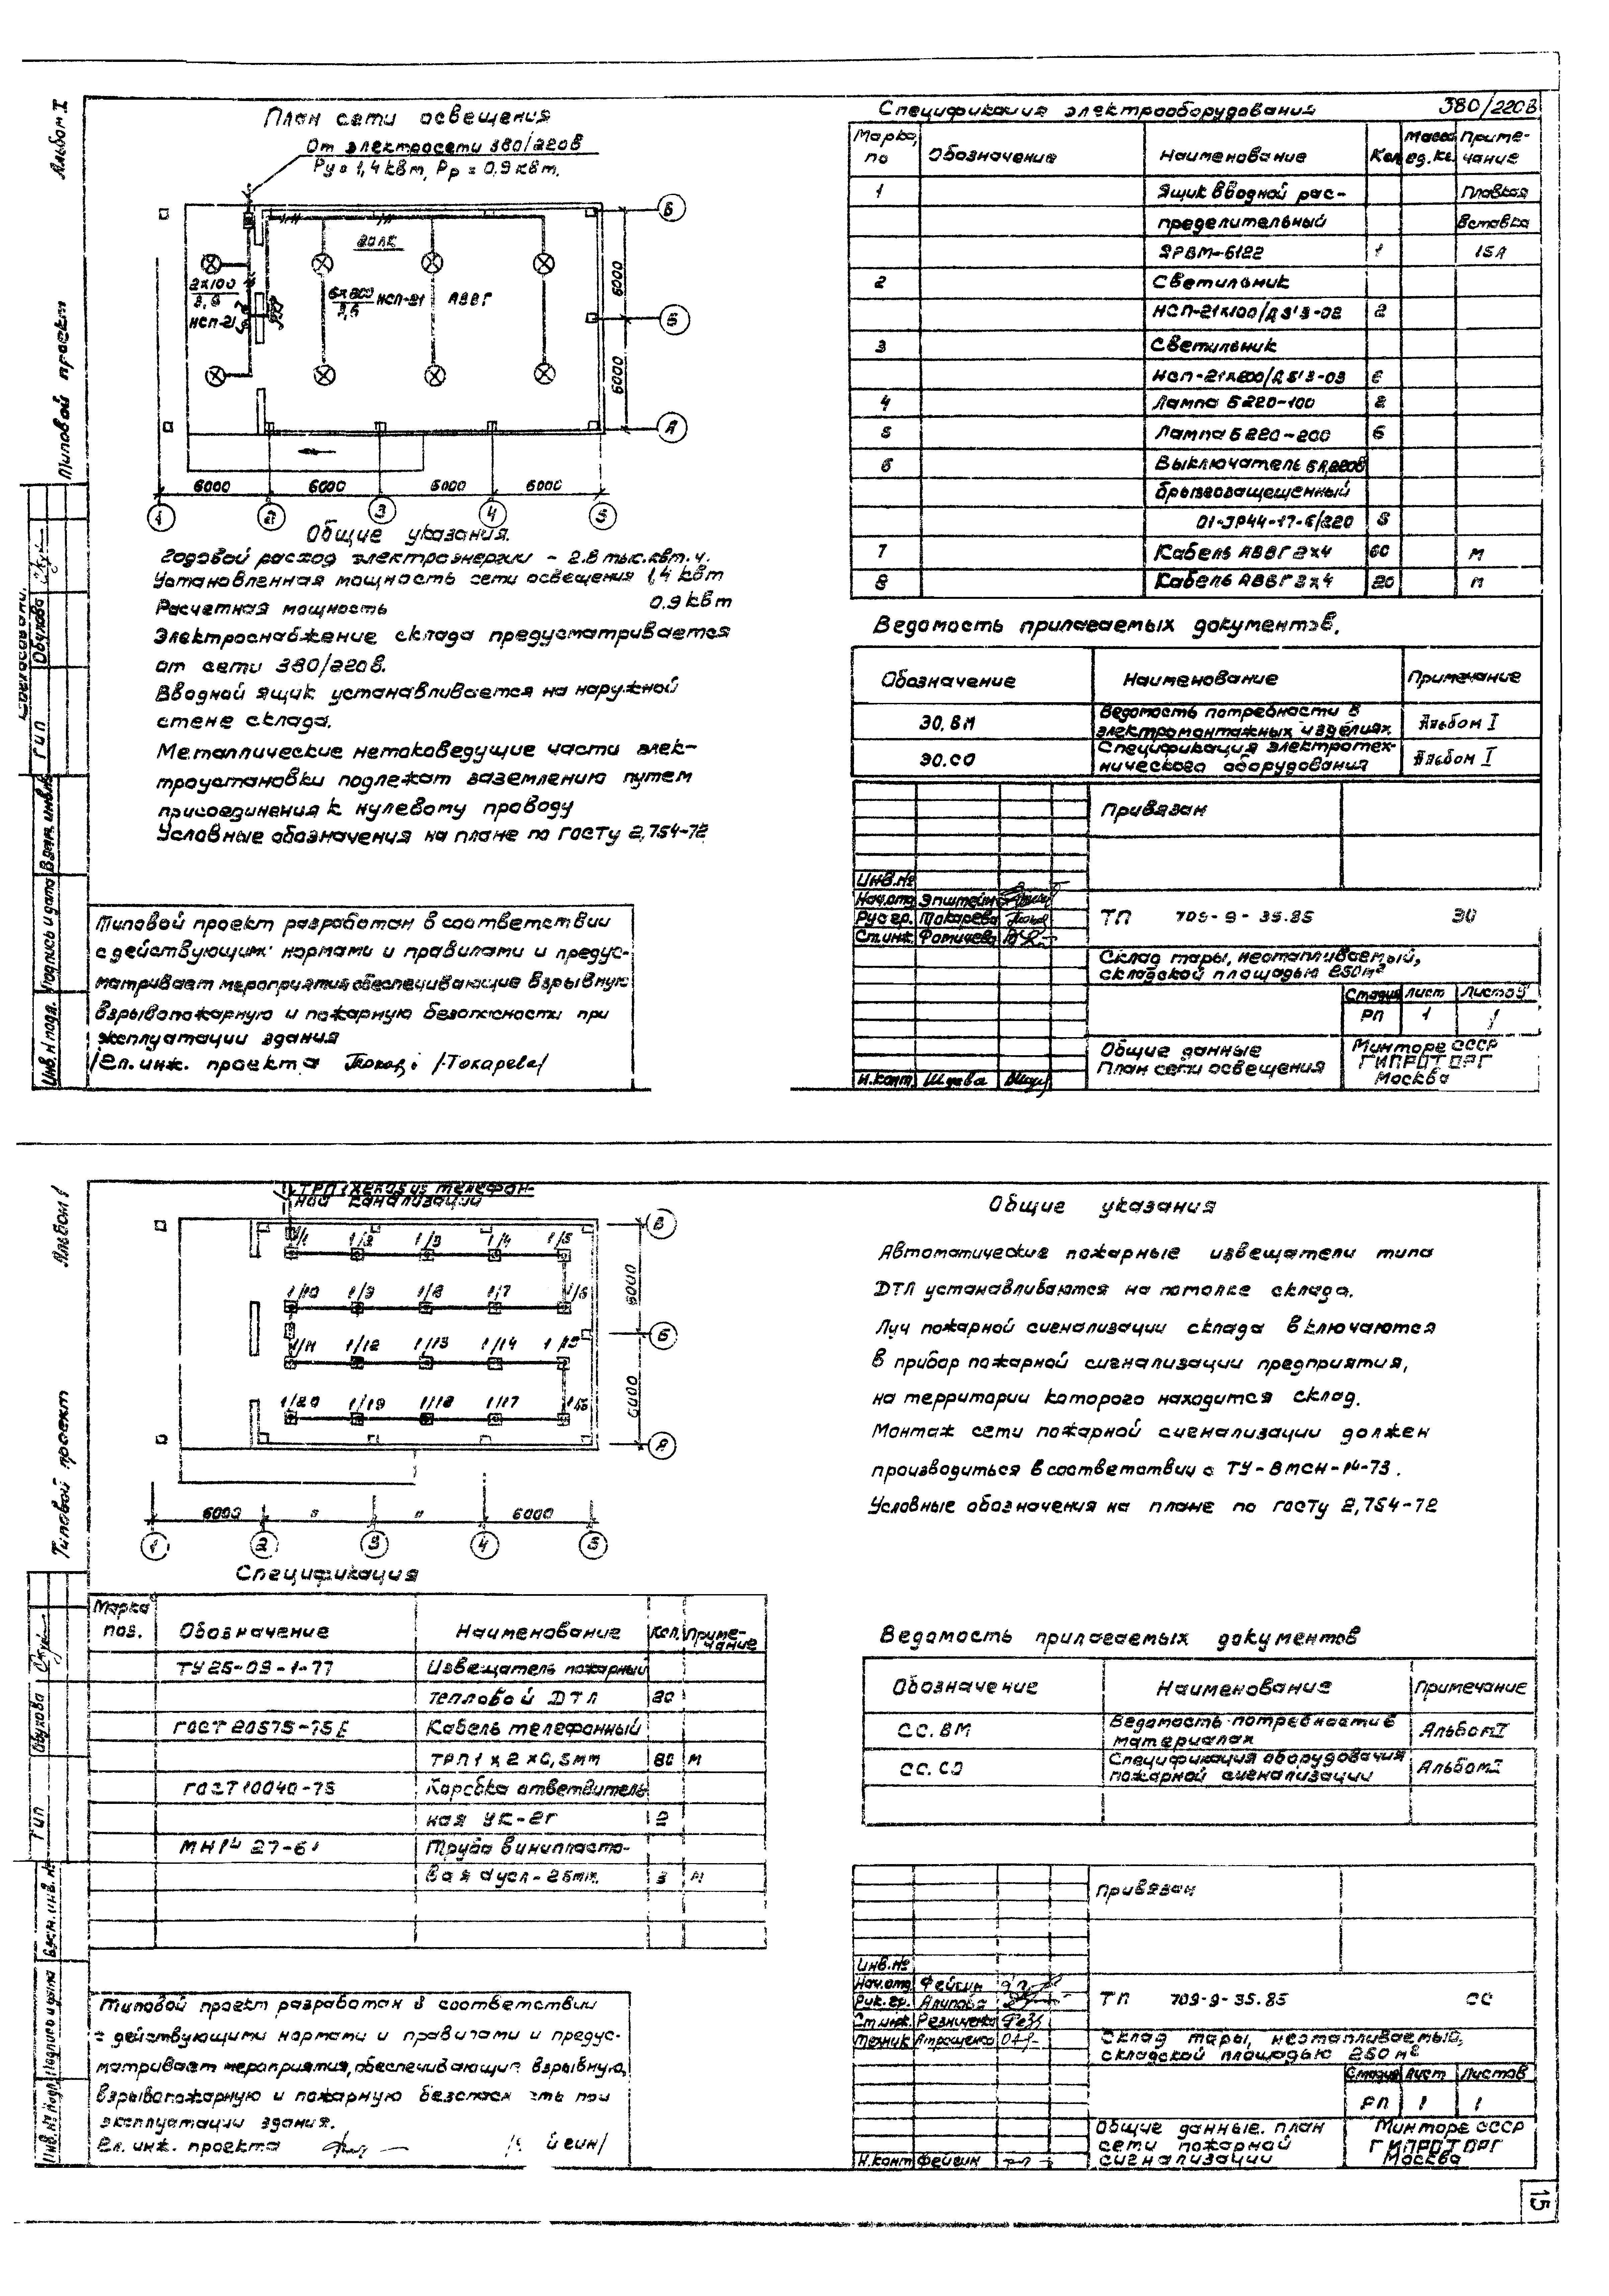 Альбом I
Типовой проект
План сети освещения
От электросети 380/220В
Ру=1,4 кВт, Рр=0.9 кВт.
20ЛК
2х100
3,6
НСП-21
6х200
3,6
НСП-21
АВВГ
В
Б
А
6000
6000
6000 6000 6000 6000
1 2 3 4 5
Общие указания.
Годовой расход электроэнергии - 2.8 тыс.квт.ч.
Установленная мощность сети освещения 1,4 кВт
Расчетная мощность 0.9 кВт
Электроснабжение склада предусматривается
от сети 380/220в.
Вводной ящик устанавливается на наружной
стене склада.
Металлические нетоковедущие части элек-
троустановки подлежат заземлению путем
присоединения к нулевому проводу
Условные обозначения на плане по ГОСТу 2,754-72
Типовой проект разработан в соответствии
с действующими нормами и правилами и предус-
матривает мероприятия обеспечивающие взрывную
взрывопожарную и пожарную безопасность при
эксплуатации здания
/Гл. инж. проекта /Токарева/
Спецификация электрооборудования 380/220в
Марка, по Обозначение Наименование Кол Масса ед.кг. Приме-чание
1 Ящик вводной рас- Плавкая
пределительный вставка
ЯРВМ-6122 1 15А
2 Светильник
НСП-21х100/Д 3'3-02 2
3 Светильник
НСП-21х200/Д 5'3-03 6
4 Лампа Б220-100 2
5 Лампа Б220-200 6
6 Выключатель 6А,220в
брызгозащещенный
01-JP44-17-6/220
7 Кабель АВВГ 2х4 60 м
8 Кабель АВВГ 3х4 20 м
Ведомость прилагаемых документов.
Обозначение Наименование Примечание
ЭО.ВМ Ведомость потребности в электромонтажных изделиях Альбом I
ЭО.СО Спецификация электротех-нического оборудования Альбом I
Привязан
Инв.№
Нач.отд Эпштейн
Рук.гр. Токарева
Ст.инж. Фомичева
ТП 709-9-35.85 ЭО
Склад тары, неотапливаемый,
складской площадью 250м²
Стадия Лист Листов
РП 1 1
Общие данные
План сети освещения
Минторг СССР
ГИПРОТОРГ
Москва
Н.конт.
ГИП
Обухова
Инв.№ подл. Подпись и дата Взам. инв.№
Альбом I
Типовой проект
телефон-
ной канализации
1/1 1/2 1/3 1/4 1/5
1/10 1/9 1/8 1/7 1/6
1/11 1/12 1/13 1/14 1/15
1/20 1/19 1/18 1/17 1/16
В
Б
А
6000
6000
6000 6000
1 2 3 4 5
Спецификация
Марка поз. Обозначение Наименование Кол. Приме-чание
ТУ25-09-1-77 Извещатель пожарный
тепловой ДТЛ 20
ГОСТ 20575-75Е Кабель телефонный
ТРП 1х2х0,5мм 80 м
ГОСТ 10040-75 Коробка ответвитель
ная УК-2Г 2
Труба винипласто-
вая dусл-25мм. 3 м
Типовой проект разработан в соответствии
с действующими нормами и правилами и предус-
матривает мероприятия, обеспечивающие взрывную,
взрывопожарную и пожарную безопасность при
эксплуатации здания.
Гл. инж. проекта
Общие указания
Автоматические пожарные извещатели типа
ДТЛ устанавливаются на потолке склада.
Луч пожарной сигнализации склада включаются
в прибор пожарной сигнализации предприятия,
на территории которого находится склад.
Монтаж сети пожарной сигнализации должен
производиться в соответствии с ТУ-ВМСН-14-73.
Условные обозначения на плане по ГОСТу 2,754-72
Ведомость прилагаемых документов
Обозначение Наименование Примечание
СС.ВМ Ведомость потребности в материалах Альбом I
СС.СО Спецификация оборудования пожарной сигнализации Альбом I
Привязан
Инв.№
Нач.отд Фейгин
Рук.гр. Алипова
Ст.инж. Резниченко
Техник
ТП 709-9-35.85 СС
Склад тары, неотапливаемый,
складской площадью 250 м²
Стадия Лист Листов
РП 1 1
Общие данные. План
сети пожарной
сигнализации
Минторг СССР
ГИПРОТОРГ
Москва
Н.конт Фейгин
ГИП
Обухова
Инв.№ подл. Подпись и дата Взам. инв.№
15